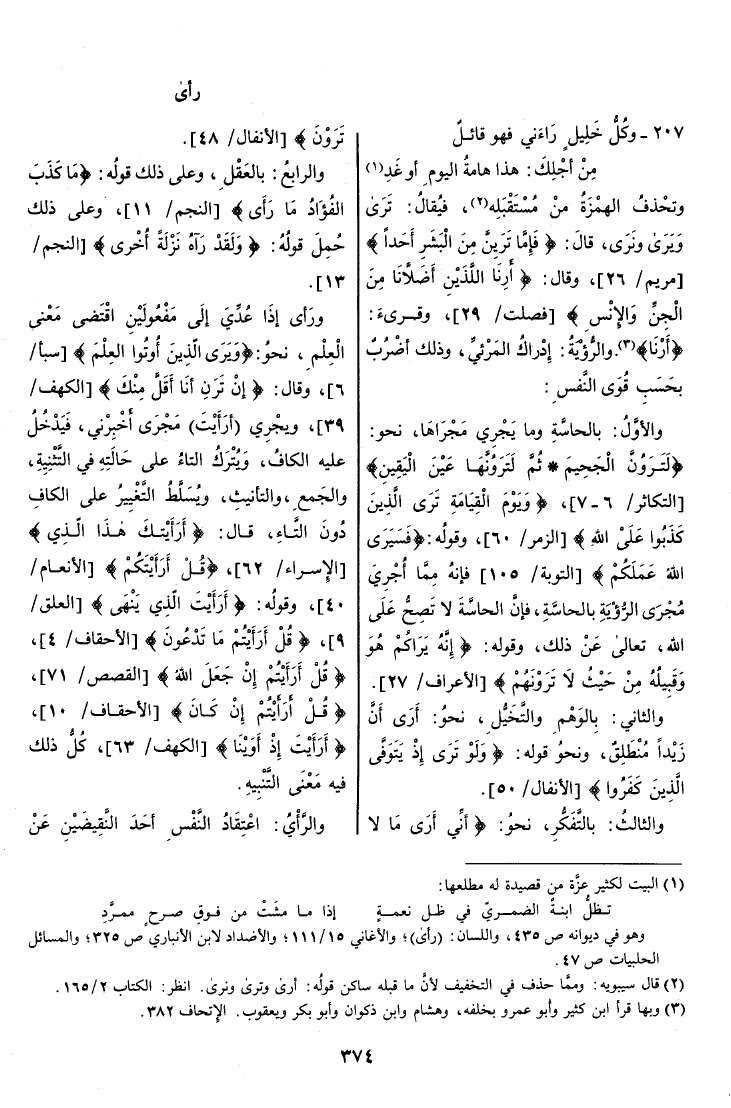 رأى
٢٠٧ - وكُلُّ خَلِيلٍ رَاءَني فهو قائلٌ
مِنْ أجلِكَ: هذا هامةُ اليومِ أو غَدِ(١)
وتحذفُ الهمْزَةُ منْ مُسْتَقْبَلِه(٢)، فيُقالُ: تَرَى
وَيَرَى ونَرَى، قالَ: ﴿ فَإِمَّا تَرَيِنَّ مِنَ الْبَشَرِ أحَداً ﴾
[مريم/ ٢٦]، وقال: ﴿ أَرِنَا اللَّذَيْنِ أَضَلَّانَا مِنَ
الْجِنِّ وَالإنْسِ ﴾ [فصلت/ ٢٩]، وقرىءَ:
﴿أرْنَا﴾(٣). والرُّؤْيَةُ: إدْرَاكُ المَرْئيِّ، وذلك أضْرُبٌ
بحَسَبِ قُوَى النَّفْسِ:
والأوَّلُ: بالحاسَّةِ وما يَجْرِي مَجْرَاهَا، نحو:
﴿لَتَرَوُنَّ الْجَحِيمَ * ثُمَّ لَتَرَوُنَّهَا عَيْنَ الْيَقِينِ﴾
[التكاثر/ ٦ - ٧]، ﴿ وَيَوْمَ الْقِيَامَةِ تَرَى الَّذِينَ
كَذَبُوا عَلَىْ اللهِ ﴾ [الزمر/ ٦٠]، وقوله: ﴿فَسَيَرَى
اللهُ عَمَلَكُمْ ﴾ [التوبة/ ١٠٥] فإنهُ مِمَّا أُجْرِيَ
مُجْرَى الرُّؤْيَةِ بالحاسَّةِ، فإنَّ الحاسَّةَ لا تَصِحُّ عَلَى
الله، تعالىٰ عَنْ ذلك، وقوله: ﴿ إنَّهُ يَرَاكُمْ هُوَ
وَقَبِيلُهُ مِنْ حَيْثُ لَا تَرَوْنَهُمْ ﴾ [الأعراف/ ٢٧].
والثاني: بالوَهْمِ والتَّخَيُّلِ، نحوُ: أَرَى أنَّ
زَيْداً مُنْطَلِقٌ، ونحوُ قوله: ﴿ وَلَوْ تَرَى إذْ يَتَوَفَّى
الَّذِينَ كَفَرُوا ﴾ [الأنفال/ ٥٠].
والثالثُ: بالتَّفَكُّرِ، نحوُ: ﴿ أنِّي أرَى مَا لا
تَرَوْنَ ﴾ [الأنفال/ ٤٨].
والرابعُ: بالعَقْلِ، وعلى ذلك قولُه: ﴿مَا كَذَبَ
الفُؤَادُ مَا رَأى ﴾ [النجم/ ١١]، وعلى ذلك
حُمِلَ قولُهُ: ﴿ وَلَقَدْ رَآهُ نَزْلَةً أُخْرى ﴾ [النجم/
١٣].
ورَأى إذَا عُدِّيَ إلَى مَفْعُولَيْنِ اقْتَضَى مَعْنَى
الْعِلْمِ، نحوُ: ﴿وَيَرَى الَّذِينَ أُوتُوا العِلْمَ ﴾ [سبأ/
٦]، وقال: ﴿ إنْ تَرَنِ أنَا أقَلَّ مِنْكَ ﴾ [الكهف/
٣٩]، ويجْرِي (أرَأيْتَ) مَجْرَى أخْبِرْني، فَيَدْخُلُ
عليه الكافُ، وَيُتْرَكُ التاءُ على حَالَتِهِ في التَّثْنِيَةِ،
والجَمعِ، والتأنيثِ، ويُسَلَّطُ التَّغْيِيرُ على الكافِ
دُونَ التَّاءِ، قال: ﴿ أرَأيْتَكَ هٰذَا الَّذِي ﴾
[الإسراء/ ٦٢]، ﴿قُلْ أرَأيْتَكُمْ ﴾ [الأنعام/
٤٠]، وقولُه: ﴿ أرَأيْتَ الَّذِي يَنْهَى ﴾ [العلق/
٩]، ﴿ قُلْ أرَأيْتُمْ مَا تَدْعُونَ ﴾ [الأحقاف/ ٤]،
﴿ قُلْ أرَأيْتُمْ إنْ جَعَلَ اللهُ ﴾ [القصص/ ٧١]،
﴿ قُلْ أرَأيْتُمْ إنْ كَانَ﴾ [الأحقاف/ ١٠]،
﴿ أرَأيْتَ إذْ أوَيْنَا ﴾ [الكهف/ ٦٣]، كُلُّ ذلك
فيه مَعْنَى التَّنْبِيهِ.
والرَّأْيُ: اعْتِقَادُ النَّفْسِ أحَدَ النَّقِيضَيْنِ عَنْ
(١) البيت لكثير عزَّة من قصيدة له مطلعها:
تظلُّ ابنةُ الضمريِّ في ظل نعمةٍ إذا ما مشَتْ من فوق صرحٍ ممرَّدِ
وهو في ديوانه ص ٤٣٥، واللسان: (رأى)؛ والأغاني ١١١/١٥؛ والأضداد لابن الأنباري ص ٣٢٥؛ والمسائل
الحلبيات ص ٤٧.
(٢) قال سيبويه: وممَّا حذف في التخفيف لأنَّ ما قبله ساكن قولُه: أرىٰ وترىٰ ونرىٰ. انظر: الكتاب ١٦٥/٢.
(٣) وبها قرأ ابن كثير وأبو عمرو بخلفه، وهشام وابن ذكوان وأبو بكر ويعقوب. الإتحاف ٣٨٢.
٣٧٤